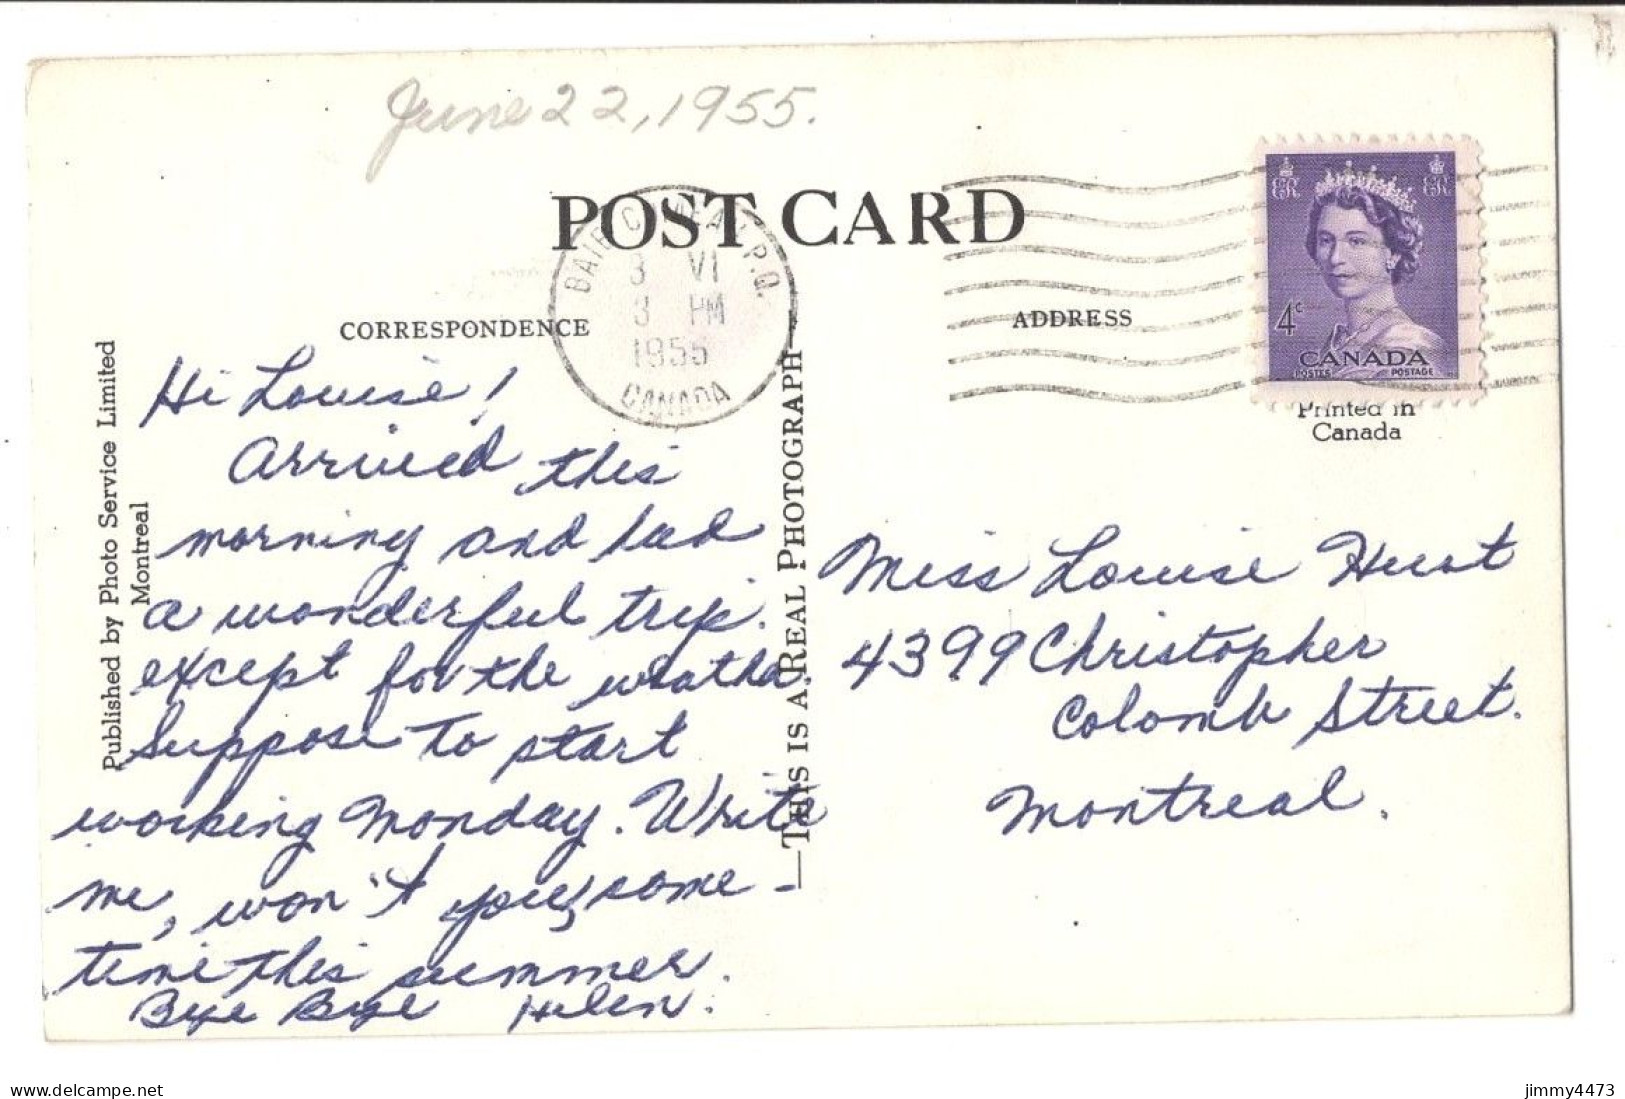 June 22, 1955.
POST CARD
BAIE COMEAU P.Q.
3 VI
3 PM
1955
CANADA
4c
CANADA
POSTES POSTAGE
Printed in
Canada
CORRESPONDENCE
ADDRESS
Published by Photo Service Limited
Montreal
—THIS IS A REAL PHOTOGRAPH—
Hi Louise!
Arrived this
morning and had
a wonderful trip.
except for the weather
Suppose to start
working Monday. Write
me, won't you, some-
time this summer.
Bye Bye Helen.
Miss Louise Hurst
4399 Christopher
Colomb Street.
Montreal.
delcampe.net
jimmy4473